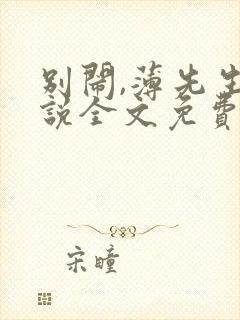 别闹,薄先生
說全文免費
宋瞳